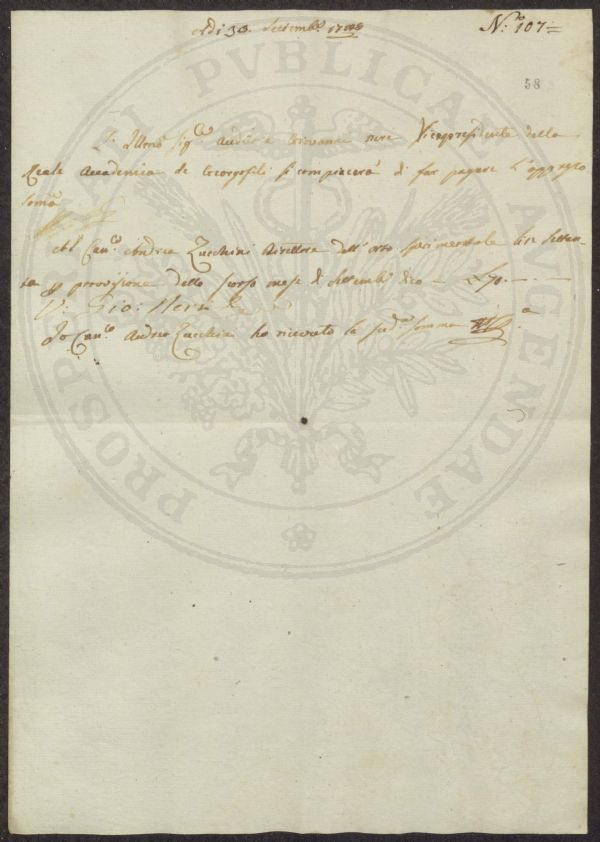 Adi 30. Settemb.e
N.o 107=
58
L'Illmo Sig.e Auditore Giovanni Neri Vicepresidente della
Reale Accademia de Georgofili si compiacerà di far pagare l'appresso
somã
Al Can.co Andrea Zucchini Direttore dell'orto sperimentale lire Settan-
ta provvisione dello scorso mese di Settemb.e dico — £ 70. —
V. Gio: Neri
Io Can.co Andrea Zucchini ho ricevuto la sud.a somma
PROSPERITATI PVBLICAE AVGENDAE